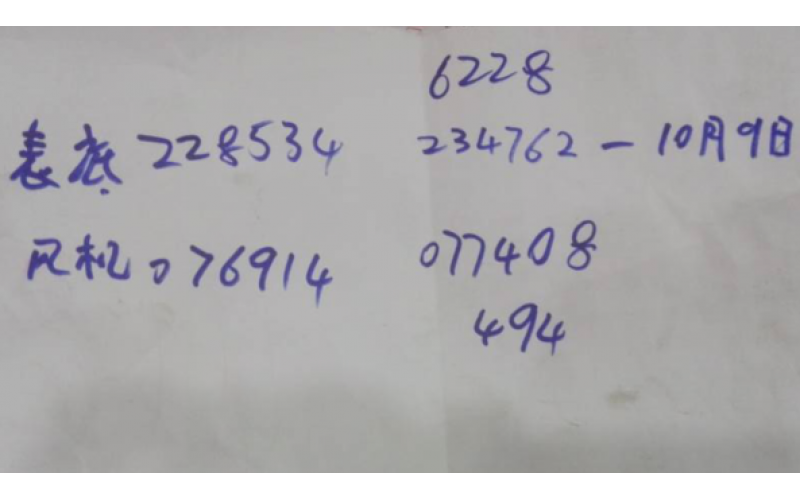 6228
表底 228534 234762 - 10月9日
风机 076914 077408
494